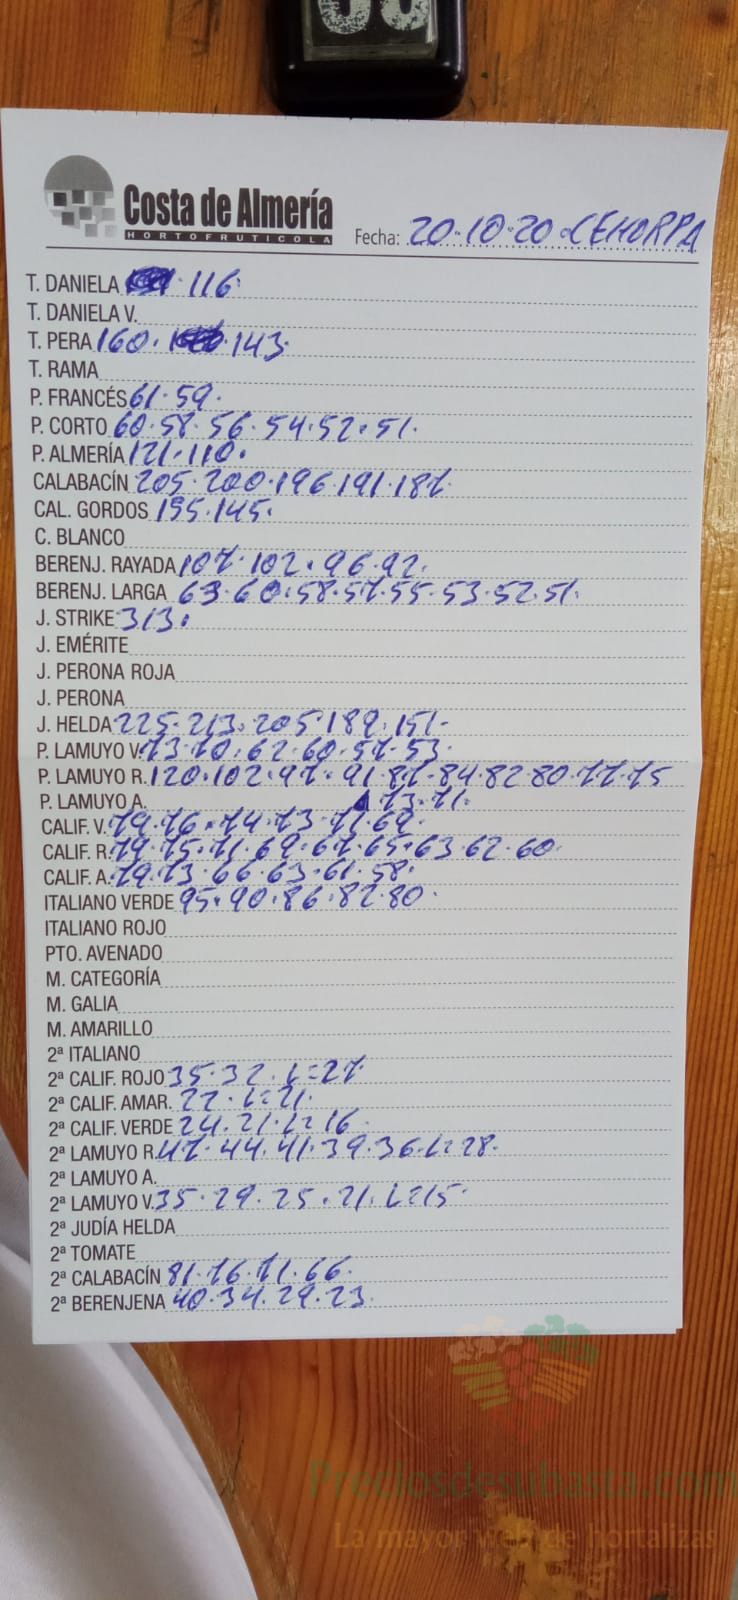 Costa de Almería
HORTOFRUTICOLA
Fecha: 20-10-20 CEHORPA
T. DANIELA 116
T. DANIELA V.
T. PERA 160. 143
T. RAMA
P. FRANCÉS 61.59.
P. CORTO 60.58.56.54.52.51.
P. ALMERÍA 121.110.
CALABACÍN 205.200.196 191.187
CAL. GORDOS 155.145.
C. BLANCO
BERENJ. RAYADA 107.102.96.92.
BERENJ. LARGA 63.60.58.57.55.53.52.51.
J. STRIKE 313.
J. EMÉRITE
J. PERONA ROJA
J. PERONA
J. HELDA 225.213.205.189.151.
P. LAMUYO V. 73.70.62.60.57.53.
P. LAMUYO R. 120.102.97.91.87.84.82.80.77.75
P. LAMUYO A. 73.71.
CALIF. V. 79.76.74.73.71.69.
CALIF. R. 79.75.71.69.67.65.63.62.60.
CALIF. A. 79.73.66.63.61.58.
ITALIANO VERDE 95.90.86.82.80.
ITALIANO ROJO
PTO. AVENADO
M. CATEGORÍA
M. GALIA
M. AMARILLO
2ª ITALIANO
2ª CALIF. ROJO 35.32.L=27
2ª CALIF. AMAR. 22.L=21.
2ª CALIF. VERDE 24.21.L=16
2ª LAMUYO R. 47.44.41.39.36.L=28.
2ª LAMUYO A.
2ª LAMUYO V. 35.29.25.21.L=15.
2ª JUDÍA HELDA
2ª TOMATE
2ª CALABACÍN 81.76.71.66.
2ª BERENJENA 40.34.29.23.
Preciosdesubasta.com
La mayor web de hortalizas